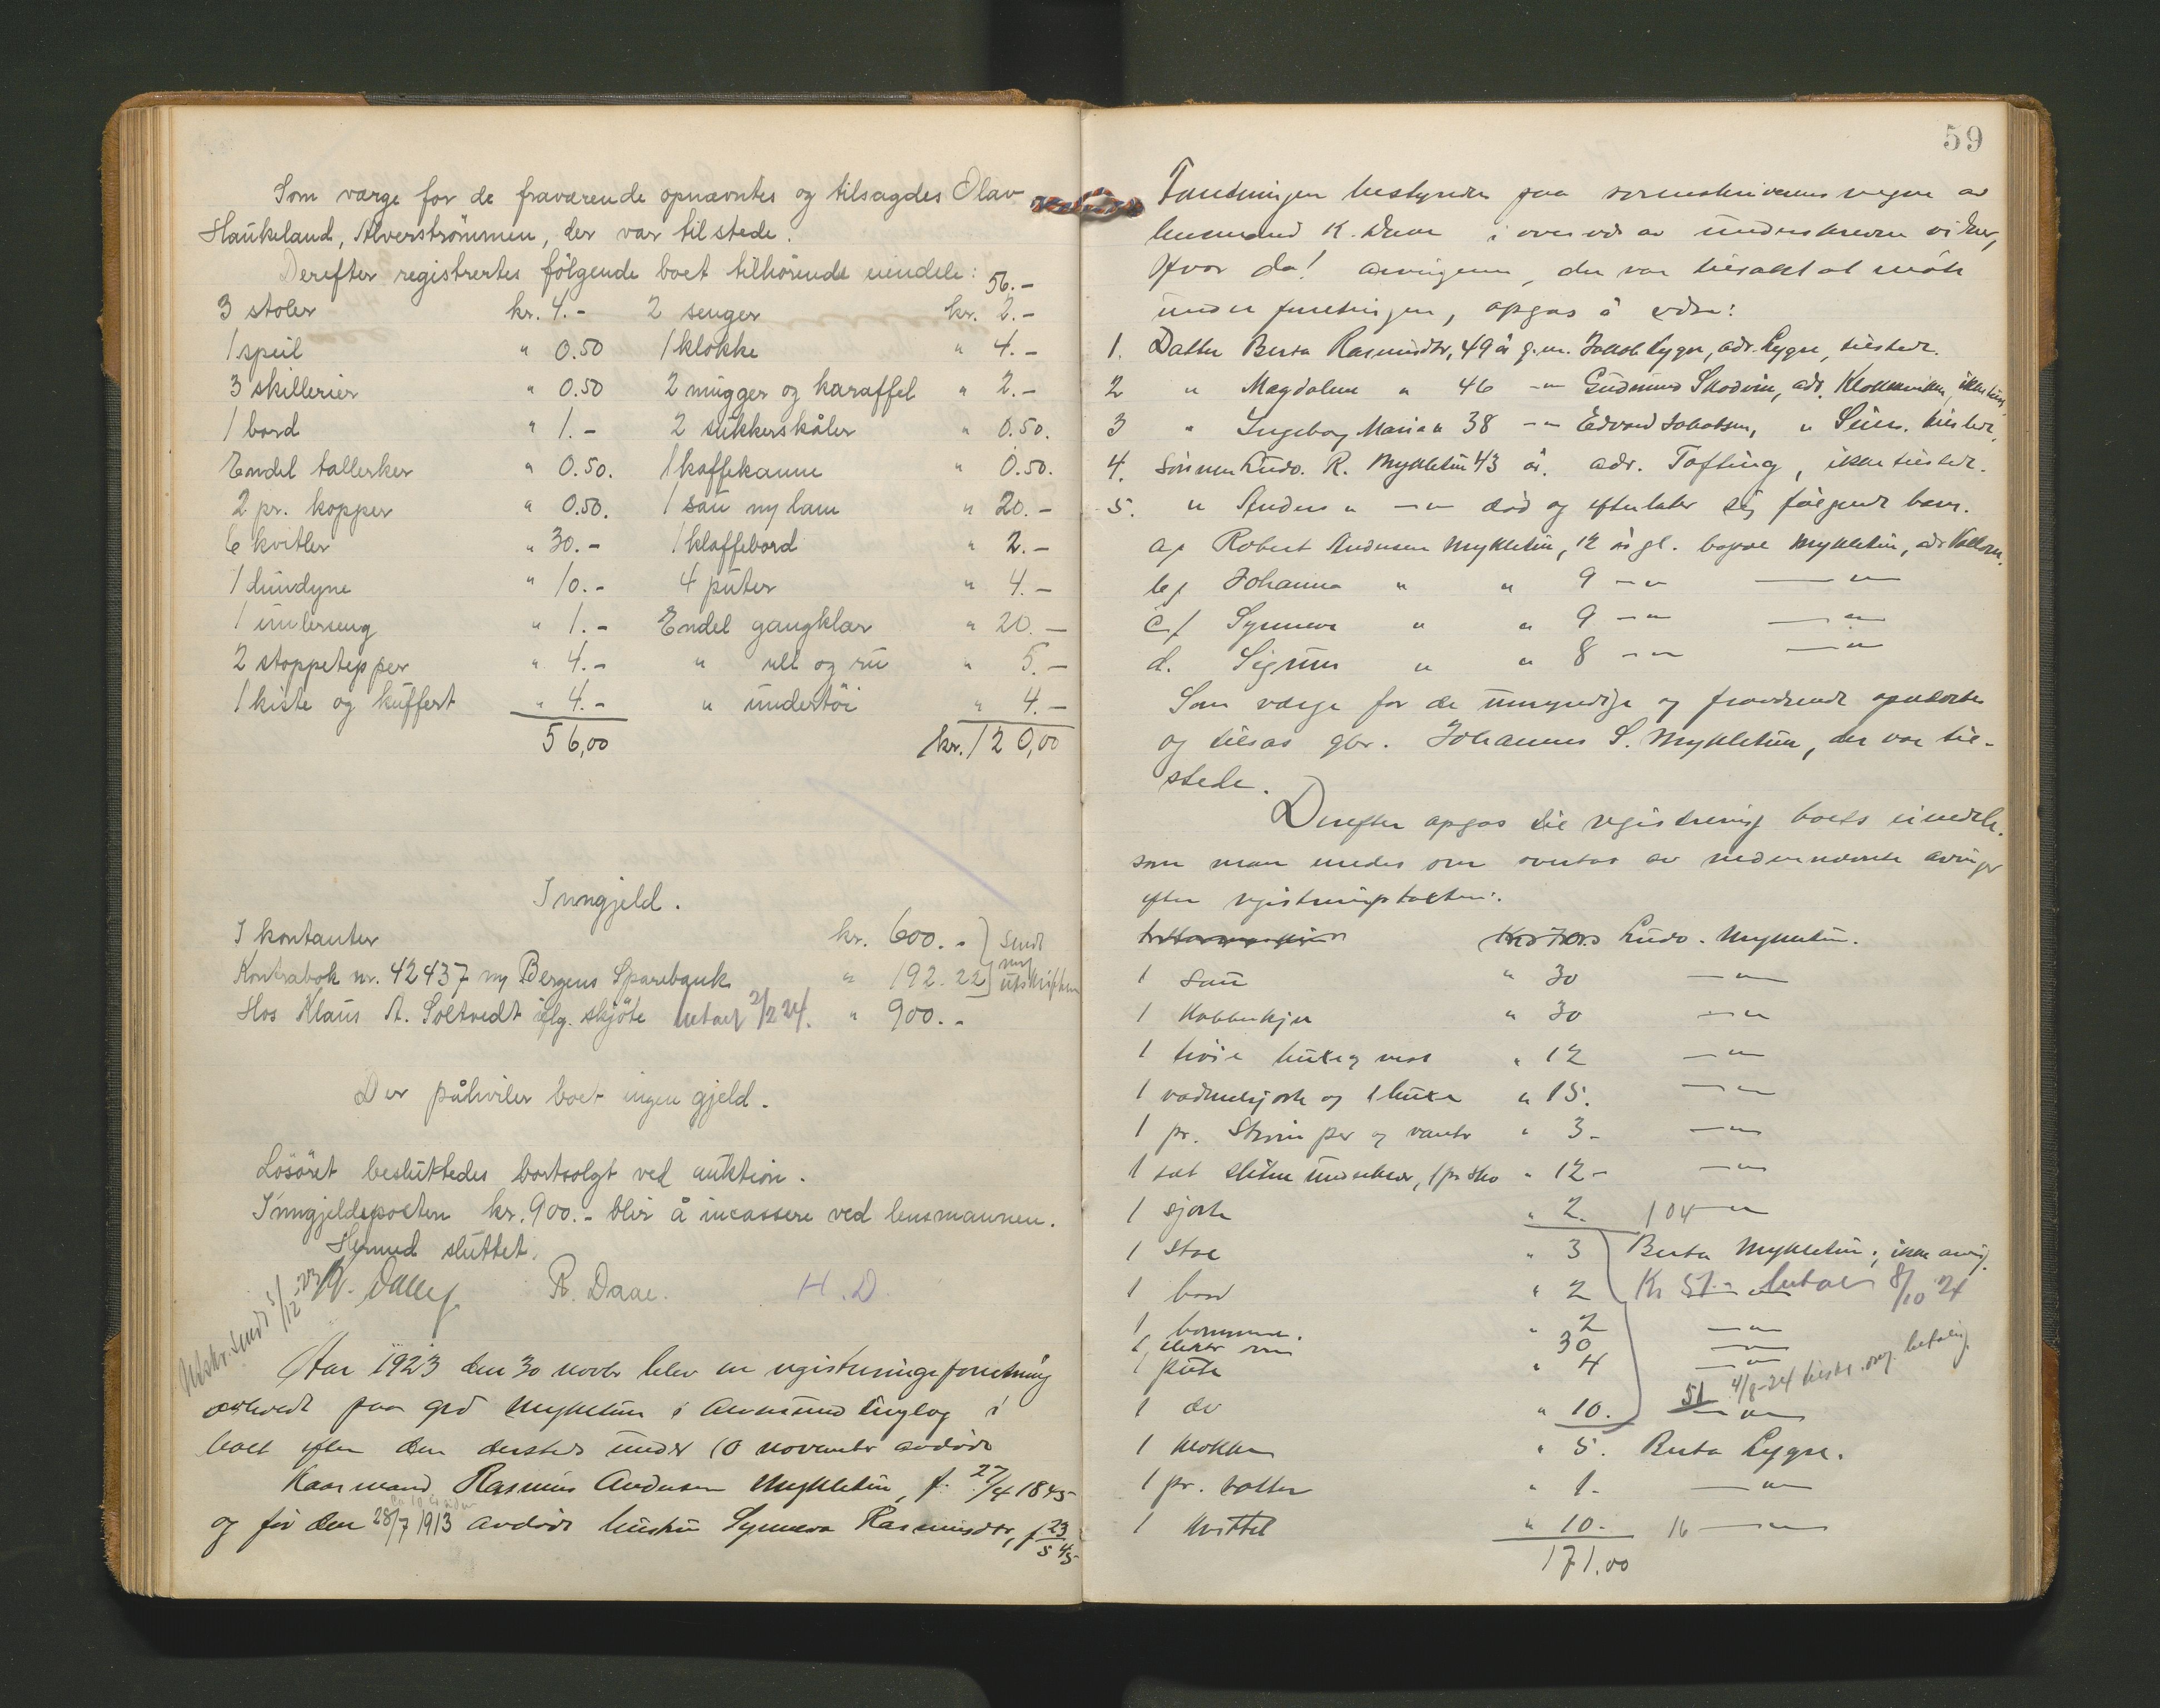 Som værge for de fraværende opnævntes og tilsagdes Olav
Haukeland, Alverströmmen, der var tilstede.
Derefter registrertes fölgende boet tilhörende eiendele:
56.-
3 stoler kr. 4.- 2 senger kr. 2.-
1 speil " 0.50 1 klokke " 4.-
3 skillerier " 0.50 2 mugger og karaffel " 2.-
1 bord " 1.- 2 sukkerskåler " 0.50.
Endel tallerker " 0.50. 1 kaffekanne " 0.50.
2 pr. kopper " 0.50. 1 sau m/ lam " 20.-
6 kvitler " 30.- 1 klaffebord " 2.-
1 dundyne " 10.- 4 puter " 4.-
1 underseng " 1.- Endel gangklær " 20.-
2 stoppetepper " 4.- " ull og ru " 5.-
1 kiste og kuffert " 4.- " undertöi " 4.-
56,00 kr. 120,00
Inngjeld.
I kontanter kr. 600.- sendt
Kontrabok nr. 42437 m/ Bergens Sparebank " 192.22 m/ utskriften
Hos Klaus A. Soltvedt iflg. skjöte betalt 2/2 24. " 900.-
Der påhviler boet ingen gjeld.
Lösöret besluttedes bortsolgt ved auktion.
Inngjeldsposten kr. 900.- blir å incassere ved lensmannen.
Hermed sluttet.
R. Daae. H.D.
Utskr. sendt 5/12 23
Aar 1923 den 30 novbr blev en registreringsforretning
avholdt paa grd Mykletun i Alversund tinglag i
boet efter den dersteds under 10 november avdöde
Kaarmand Rasmus Andersen Mykletun, f. 27/4 1845
og för den 28/7 1913 avdöde hustru Synneva Rasmusdtr, f 23/5 45
59
Forretningen bestyredes paa sorenskriverens vegne av
lensmand K. Daae i overvær av underskrevne vidner,
Hvor da! arvingerne, der var tilsakt at möte
under forretningen, opgas å være:
1. Datter Berta Rasmusdtr, 49 år g.m. Jakob Lygre, adr. Lygre, tilstede.
2 " Magdalene " 46 -"- Gudmund Skodvin, adr. Klokkarviken, ikke tilst.
3 " Ingeborg Marie " 38 -"- Edvard Jakobsen, " Seim. tilstede.
4. Sönnen Ludv. R. Mykletun 43 år. adr. Tofting, ikke tilstede.
5. " Anders " -"- död og efterlater sig fölgende barn.
a/ Robert Andersen Mykletun, 12 år gl. bopæl Mykletun, adr
b/ Johanna " " 9 -"- -"-
c/ Synneva " " 9 -"- -"-
d. Sigrun " " 8 -"- -"-
Som værge for de umyndige og fraværende opnævntes
og tilsas gbr. Johannes S. Mykletun, der var til-
stede.
Derefter opgas til registrering boets eiendele.
som man enedes om overtas av nedennævnte arvinger
efter registreringstaksten:
Ludv. Mykletun.
1 sau " 30 -"-
1 kobberkjel " 30 -"-
1 tröie bukse og vest " 12 -"-
1 vadmelsjorte og 1 bukse " 15. -"-
1 pr. Strömper og vanter " 3- -"-
1 sæt slitne underklær, 1 pr sko " 12- -"-
1 sjorte " 2. 104 -"-
1 stol " 3 Berta Mykletun, ikke arving.
1 bord " 2 Kr 51.- betalt 8/10 24
1 komme. " 2 -"-
1 30 -"-
1 pute " 4 -"-
4/8-24 tilskr. om betaling.
1 " 10. 51 -"-
1 klokke " 5. Berta Lygre.
1 pr. votter " 1- -"-
1 kvittel " 10.- 16 -"-
171.00